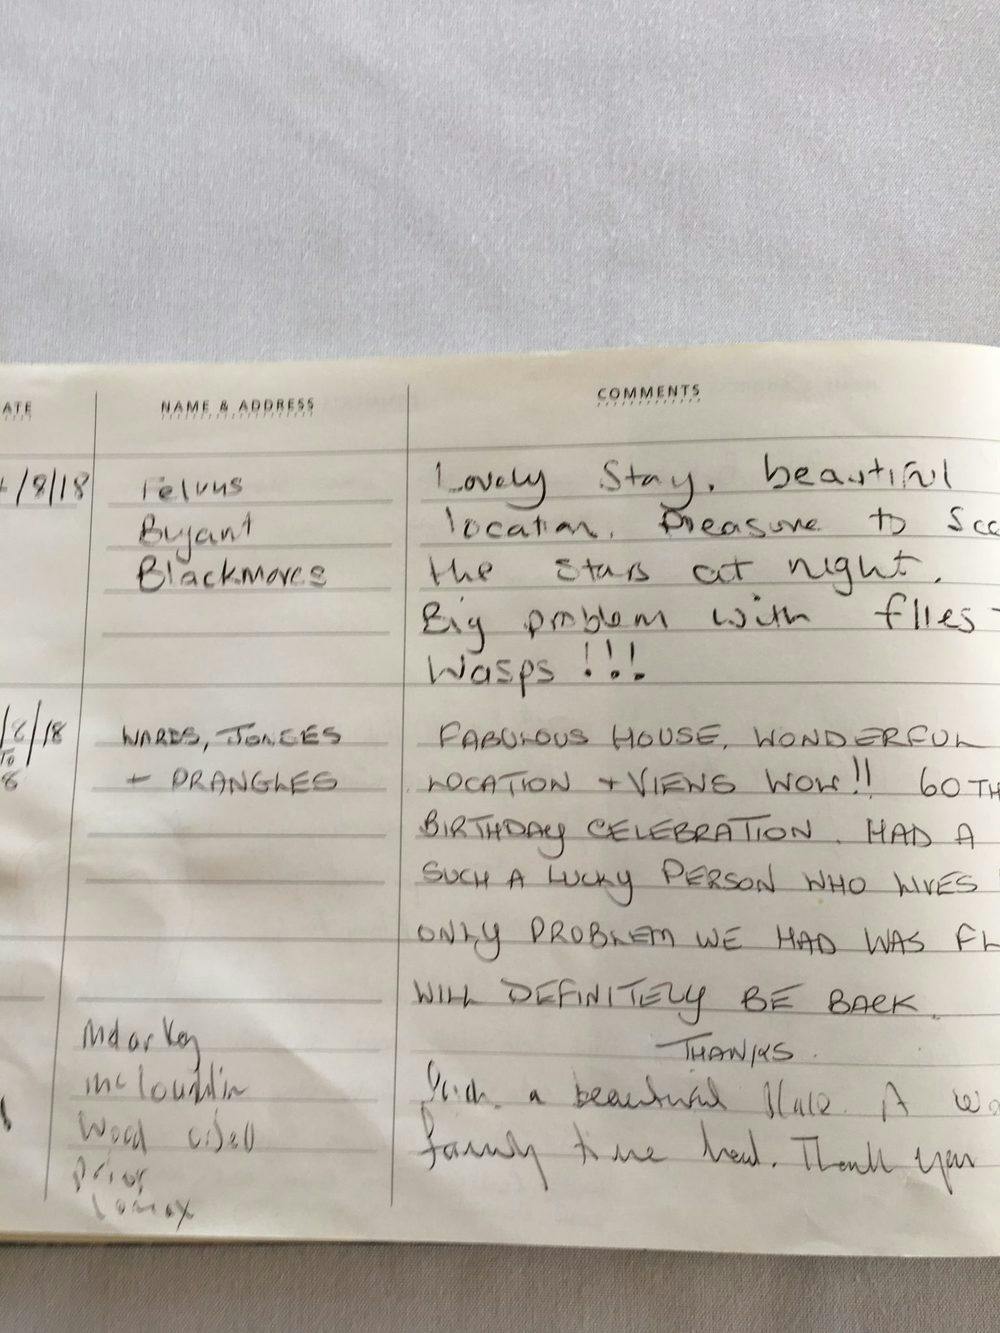 ATE NAME & ADDRESS COMMENTS
/8/18
Bryant
Blackmores
Lovely Stay, beautiful
location. Pleasure to
the stars at night.
Big problem with flies
Wasps !!!
/8/18
TO
8
WARDS,
+ PRANGLES
FABULOUS HOUSE, WONDERFUL
LOCATION + VIEWS WOW!! 60TH
BIRTHDAY CELEBRATION. HAD A
SUCH A LUCKY PERSON WHO LIVES
ONLY PROBLEM WE HAD WAS FL
WILL DEFINITELY BE BACK.
THANKS.
McLoughlin
Wood
Prior
Lomax
Such a beautiful place. A wo
family time had. Thank you